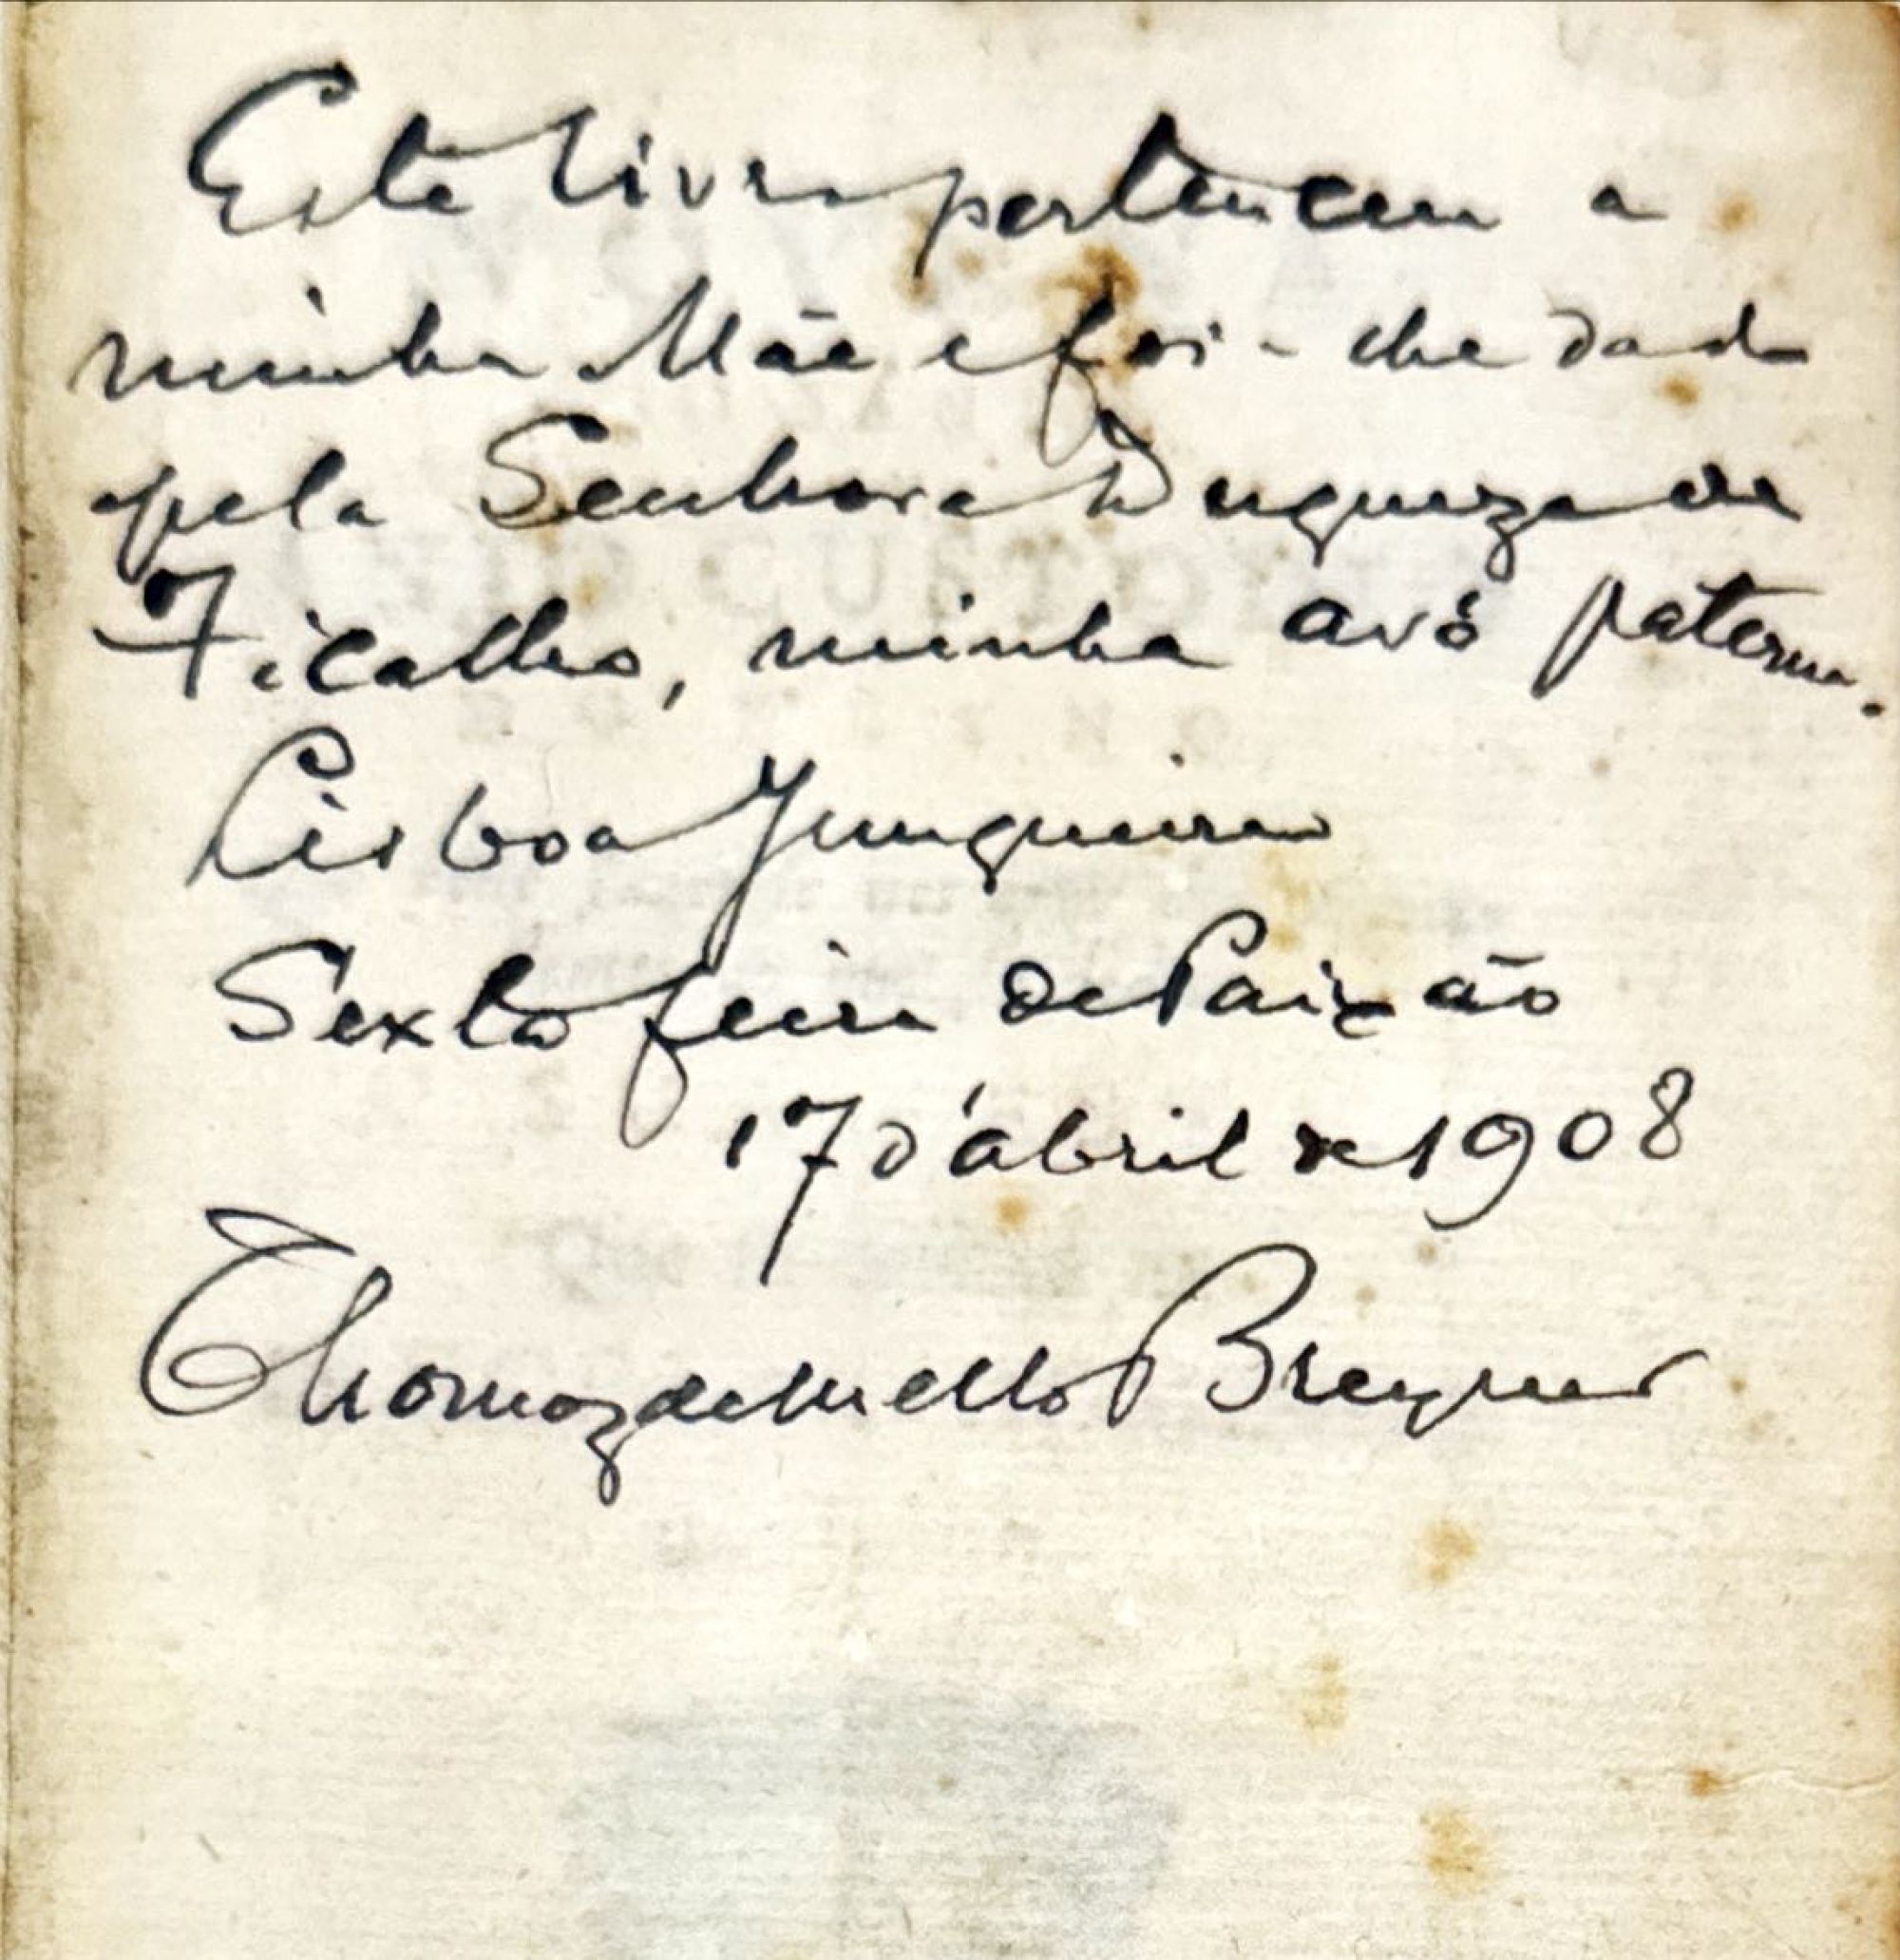 Este livro pertenceu a
minha Mãe e foi-lhe dado
pela Senhora Duqueza de
Ficalho, minha avó paterna.
Lisboa Junqueira
Sexta feira de Paixão
17 d'abril de 1908
Thomaz de Mello Breyner